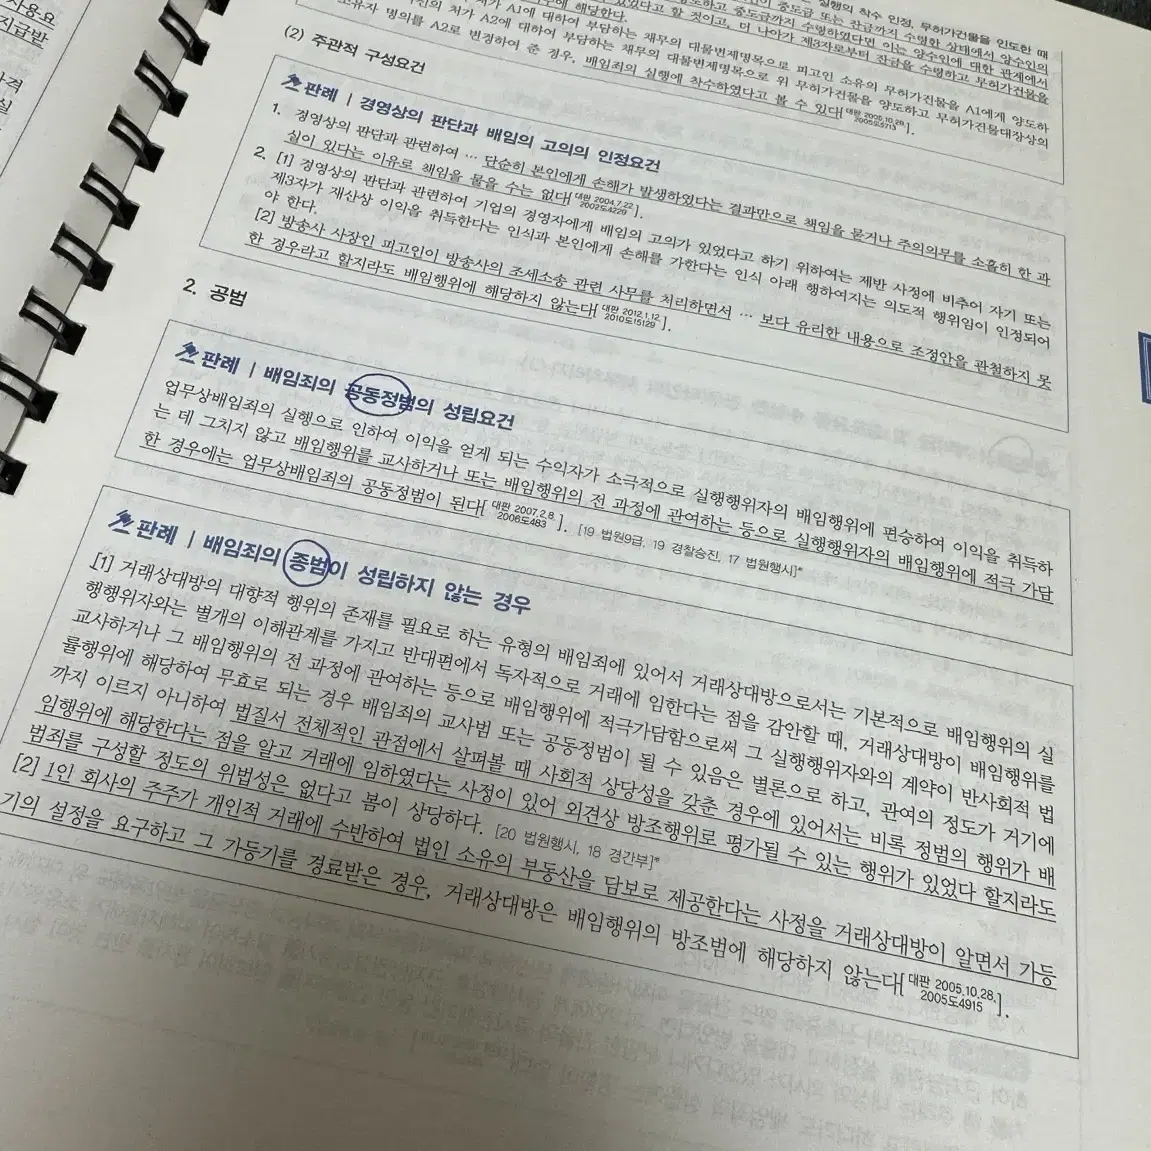 사용요
지급받
실행의 착수 인정, 무허가건물을 인도한 때
중도금 또는 잔금까지 수령한 상태에서 양수인의
있었다고 할 것이고, 더 나아가 제3자로부터 잔금을 수령하고 무허가건물을
처가 A1에 대하여 부담하는 채무의 대물변제명목으로 피고인 소유의 무허가건물을 A1에게 양도하
처가 A2에 대하여 부담하는 채무의 대물변제명목으로 위 무허가건물을 양도하고 무허가건물대장상의
소유자 명의를 A2로 변경하여 준 경우, 배임죄의 실행에 착수하였다고 볼 수 있다[대판 2005.10.28. 2005도5713].
(2) 주관적 구성요건
판례 | 경영상의 판단과 배임의 고의의 인정요건
1. 경영상의 판단과 관련하여 … 단순히 본인에게 손해가 발생하였다는 결과만으로 책임을 묻거나 주의의무를 소홀히 한 과
실이 있다는 이유로 책임을 물을 수는 없다[대판 2004.7.22. 2002도4229].
2. [1] 경영상의 판단과 관련하여 기업의 경영자에게 배임의 고의가 있었다고 하기 위하여는 제반 사정에 비추어 자기 또는
제3자가 재산상 이익을 취득한다는 인식과 본인에게 손해를 가한다는 인식 아래 행하여지는 의도적 행위임이 인정되어
야 한다.
[2] 방송사 사장인 피고인이 방송사의 조세소송 관련 사무를 처리하면서 … 보다 유리한 내용으로 조정안을 관철하지 못
한 경우라고 할지라도 배임행위에 해당하지 않는다[대판 2012.1.12. 2010도15129].
2. 공범
판례 | 배임죄의 공동정범의 성립요건
업무상배임죄의 실행으로 인하여 이익을 얻게 되는 수익자가 소극적으로 실행행위자의 배임행위에 편승하여 이익을 취득하
는 데 그치지 않고 배임행위를 교사하거나 또는 배임행위의 전 과정에 관여하는 등으로 실행행위자의 배임행위에 적극 가담
한 경우에는 업무상배임죄의 공동정범이 된다[대판 2007.2.8. 2006도483]. [19 법원9급, 19 경찰승진, 17 법원행시]*
판례 | 배임죄의 종범이 성립하지 않는 경우
[1] 거래상대방의 대향적 행위의 존재를 필요로 하는 유형의 배임죄에 있어서 거래상대방으로서는 기본적으로 배임행위의 실
행행위자와는 별개의 이해관계를 가지고 반대편에서 독자적으로 거래에 임한다는 점을 감안할 때, 거래상대방이 배임행위를
교사하거나 그 배임행위의 전 과정에 관여하는 등으로 배임행위에 적극가담함으로써 그 실행행위자와의 계약이 반사회적 법
률행위에 해당하여 무효로 되는 경우 배임죄의 교사범 또는 공동정범이 될 수 있음은 별론으로 하고, 관여의 정도가 거기에
까지 이르지 아니하여 법질서 전체적인 관점에서 살펴볼 때 사회적 상당성을 갖춘 경우에 있어서는 비록 정범의 행위가 배
임행위에 해당한다는 점을 알고 거래에 임하였다는 사정이 있어 외견상 방조행위로 평가될 수 있는 행위가 있었다 할지라도
범죄를 구성할 정도의 위법성은 없다고 봄이 상당하다. [20 법원행시, 18 경간부]*
[2] 1인 회사의 주주가 개인적 거래에 수반하여 법인 소유의 부동산을 담보로 제공한다는 사정을 거래상대방이 알면서 가등
기의 설정을 요구하고 그 가등기를 경료받은 경우, 거래상대방은 배임행위의 방조범에 해당하지 않는다[대판 2005.10.28. 2005도4915].